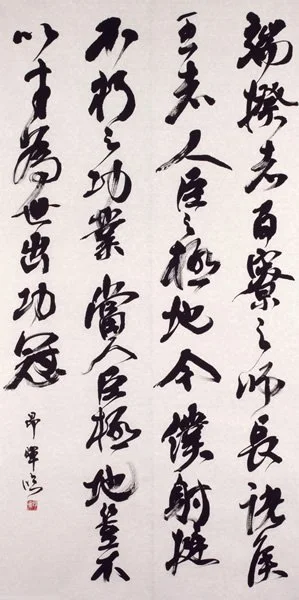 端揆者百寮之師長諸侯
王者人臣之極地今僕射挺
不朽之功業當人臣極地豈不
以才為世出功冠
臨